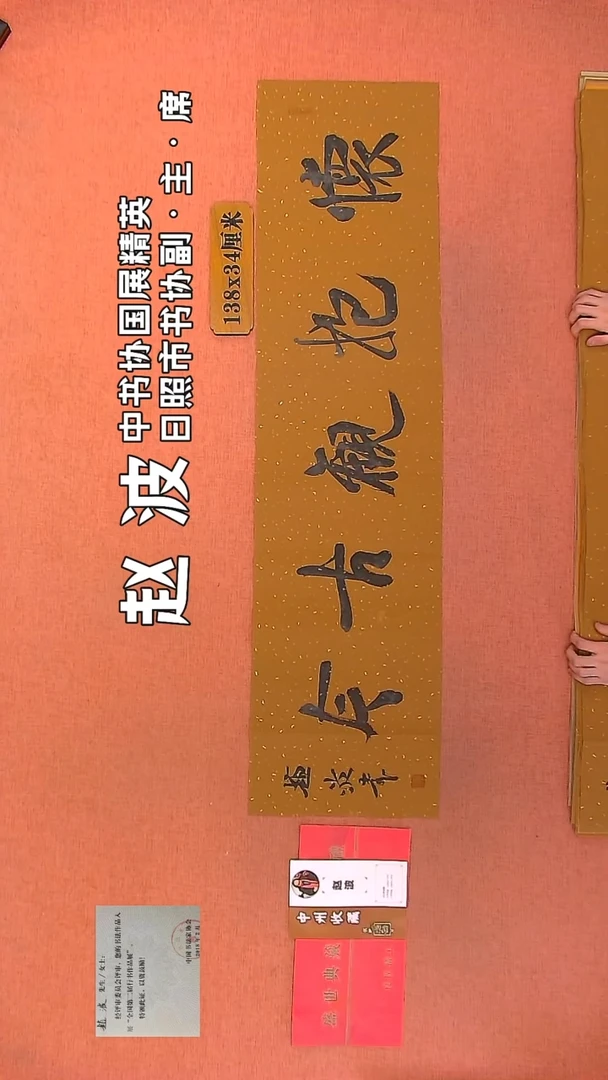 赵波
中书协国展精英
日照市书协副·主·席
138x34厘米
懷抱觀古今
趙波书
赵波
中州收藏
盛世典藏
先生/女士：
经评审委员会评审，您的书法作品入
“全国第二届行书作品展”。
特颁此证，以资鼓励！
中国书法家协会